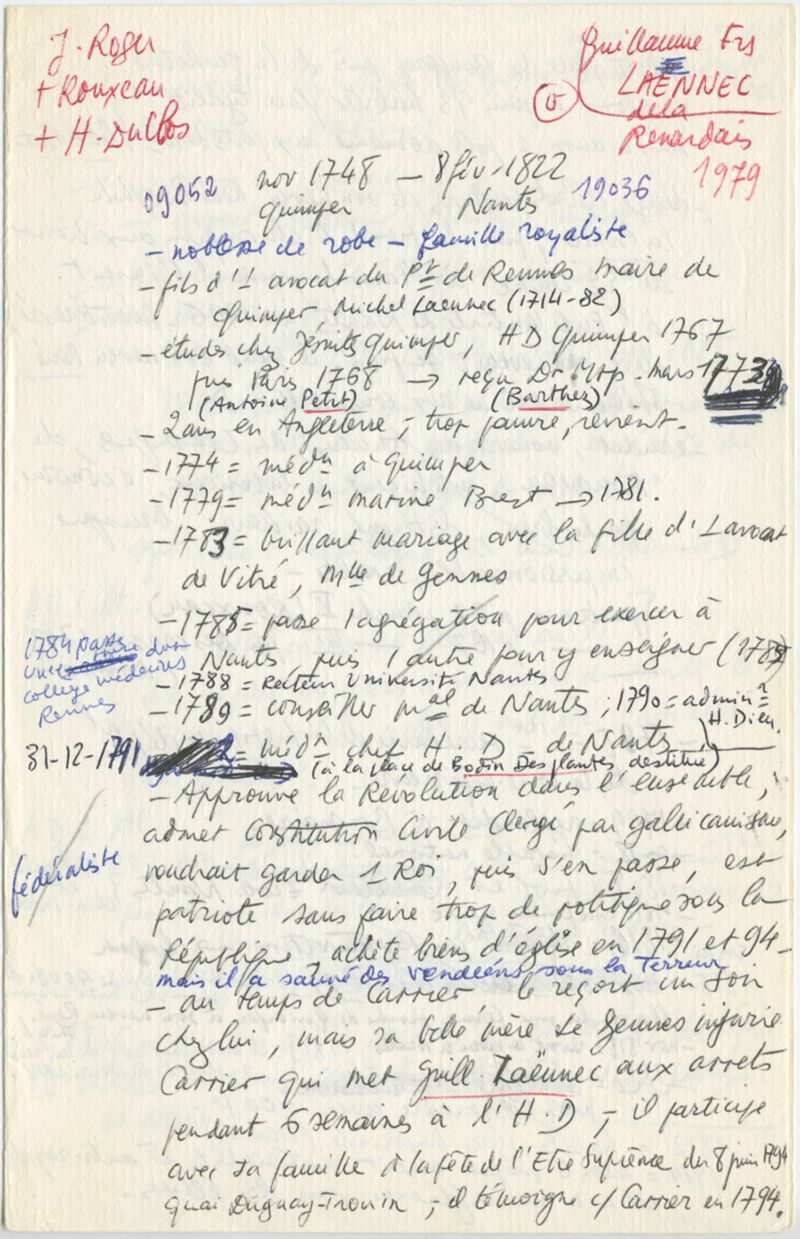 J. Roger
+ Rouxeau
+ H. Duclos
Guillaume Frs
LAËNNEC
de la
Renardais
1979
09052
nov 1748 — 8 fév. 1822
Quimper Nantes
19036
- noblesse de robe - famille royaliste
- fils d'1 avocat du Pt de Rennes maire de
Quimper, Michel Laennec (1714-82)
- études chez Jésuites Quimper, H D Quimper 1767
puis Paris 1768 → reçu Dr Mtp. mars 1773
(Antoine Petit) (Barthez)
- 2 ans en Angleterre ; trop pauvre, revient.
- 1774 = médn à Quimper
- 1779 = médn marine Brest → 1781.
- 1783 = brillant mariage avec la fille d'1 avocat
de Vitré, Mlle de Gennes
- 1785 = passe 1 agrégation pour exercer à
Nantes, puis 1 autre pour y enseigner (1787)
1784 passe
une thèse dvn
collège médecins
Rennes
- 1788 = Recteur Université Nantes
- 1789 = conseiller mal de Nantes ; 1790 = admin =
H. Dieu.
31-12-1791 = médn chef H. D - de Nantes
(à la place de Bodin Desplantes destitué)
- Approuve la Révolution dans l'ensemble,
admet Constitution Civile Clergé par gallicanisme,
voudrait garder 1 Roi, puis s'en passe, est
fédéraliste
patriote sans faire trop de politique sous la
République, achète biens d'église en 1791 et 94 -
mais il a sauvé des vendéens sous la Terreur
- au temps de Carrier, le reçoit un soir
chez lui, mais sa belle mère de Gennes injurie
Carrier qui met Guill. Laënnec aux arrêts
pendant 6 semaines à l'H. D - ; il participe
avec sa famille à la fête de l'Etre Suprême du 8 juin 1794
quai Duguay-Trouin, ; il témoigne c/ Carrier en 1794.